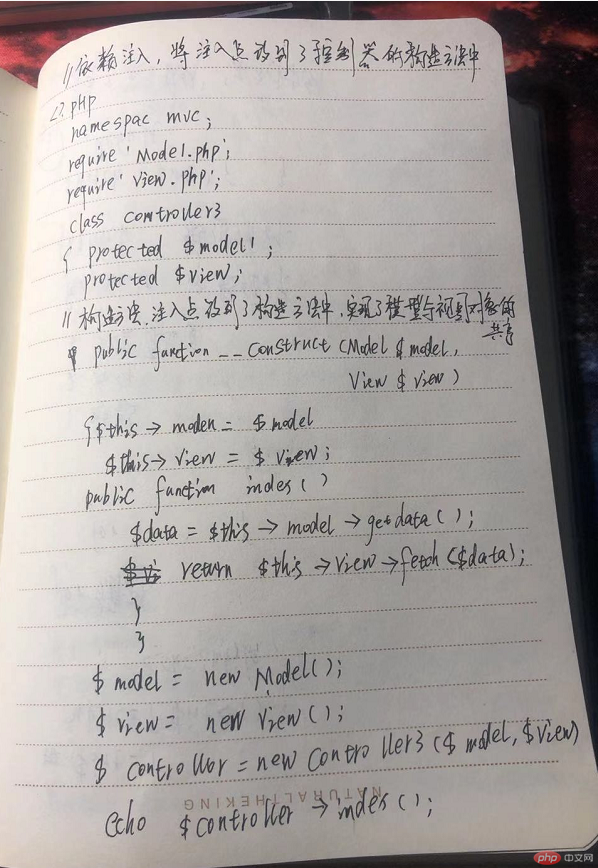 //依赖注入，将注入点放到了控制器的构造方法中
<?php
namespac mvc;
require 'Model.php';
require 'View.php';
class controller3
{ protected $model;
protected $view;
//构造方法，注入点放到了构造方法中，实现了模型与视图对象的
共享
public function __construct (Model $model,
View $view)
{$this→ moden = $model
$this→ view = $view;
public function index()
$data = $this → model → getdata();
return $this → view → fetch ($data);
}
}
$ model = new Model();
$ view = new view();
$ controller = new Controller3 ($ model, $ view)
NATURALTHEKING
echo $controller → index();
php 中文网